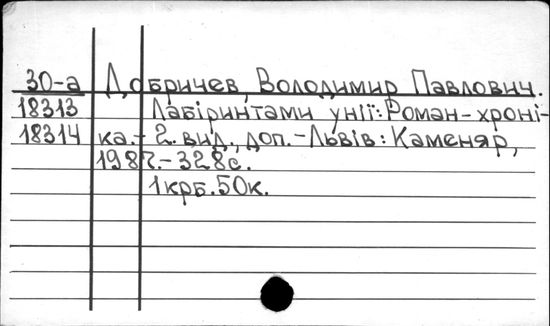 30-а Добричев, Володимир Павлович.
18313 Лабіринтами унії: Роман-хроні-
18314 ка.- 2. вид., доп.-Львів: Каменяр,
1987.-328с.
1крб.50к.